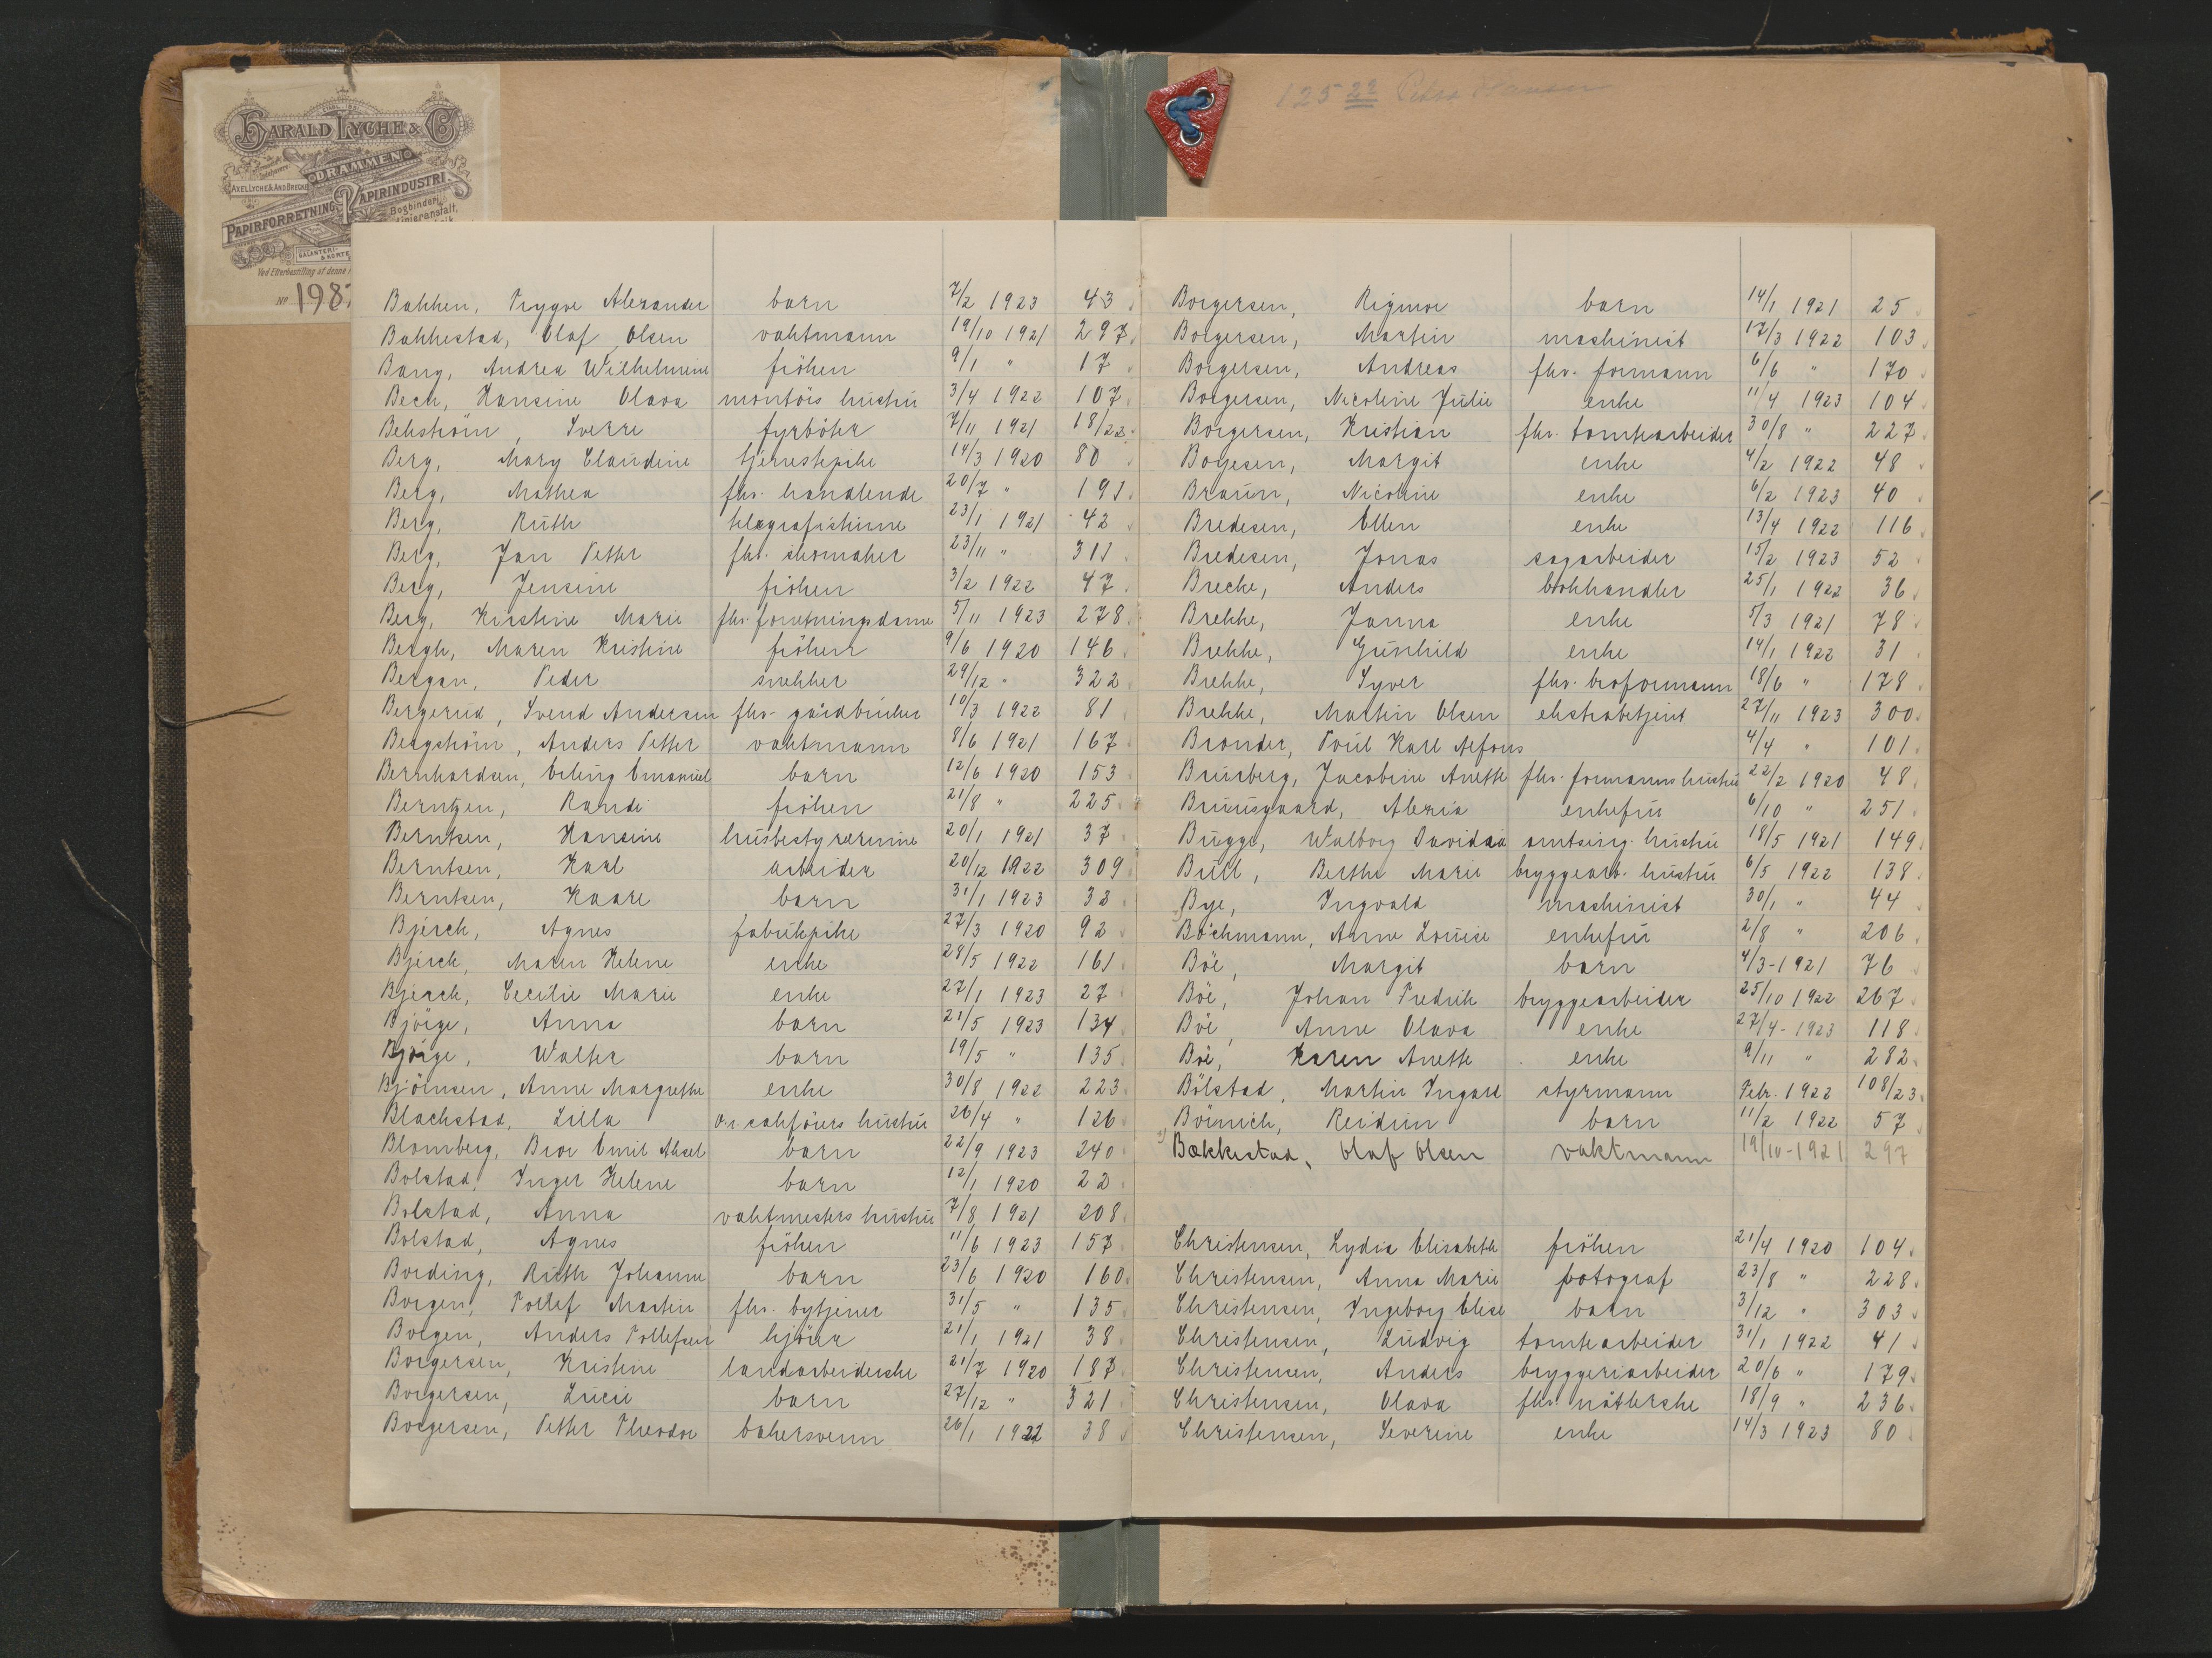 HARALD LYCHE & Co
DRAMMEN
AXEL LYCHE & AND BRECKE
PAPIRFORRETNING PAPIRINDUSTRI
Bogbinderi,
Linieranstalt,
GALANTERI-
& KORTE
Ved Efterbestilling af denne
No 1987
125 22 Hansen
Bakken, Trygve Alexander barn 7/2 1923 43
Bakkestad, Olaf Olsen vaktmann 19/10 1921 297
Bang, Andrea Wilhelmine fröken 9/1 " 17
Bech, Hansine Olava montörs hustru 3/4 1922 107
Bekström, Sverre fyrböter 7/11 1921 18/22
Berg, Mary Claudine tjenestepike 14/3 1920 80
Berg, Mathea fhv. handlende 20/7 " 191
Berg, Ruth telegrafistinne 23/1 1921 42
Berg, Jan Petter fhv. skomaker 23/11 " 311
Berg, Jensine fröken 3/2 1922 47
Berg, Kirstine Marie fhv. forretningsdame 5/11 1923 278
Bergh, Maren Kristine fröken 9/6 1920 146
Bergan, Peder snekker 29/12 " 322
Bergerud, Svend Andersen fhv. gårdbruker 10/3 1922 81
Bergström, Anders Petter vaktmann 8/6 1921 167
Bernhardsen, Erling Emanuel barn 12/6 1920 153
Berntzen, Randi fröken 21/8 " 225
Berntsen, Hansine husbestyrerinne 20/1 1921 37
Berntsen, Karl arbeider 20/12 1922 309
Berntsen, Kaare barn 31/1 1923 33
Bjerch, Agnes fabrikpike 27/3 1920 92
Bjerch, Maren Helene enke 28/5 1922 161
Bjerch, Cecilie Marie enke 27/1 1923 27
Björge, Anna barn 21/5 1923 134
Bjørge, Walter barn 19/5 " 135
Björnsen, Anne Margrethe enke 30/8 1922 223
Blackstad, Lilla o.r.sakförers hustru 26/4 " 126
Blomberg, Bror Emil Aksel barn 22/9 1923 240
Bolstad, Inger Helene barn 12/1 1920 22
Bolstad, Anna vaktmesters hustru 7/8 1921 208
Bolstad, Agnes fröken 11/6 1923 157
Bording, Ruth Johanne barn 23/6 1920 160
Borgen, Tollef Martin fhv. bytjener 31/5 " 135
Borgen, Anders Tollefsen kjörer 21/1 1921 38
Borgersen, Kristine landarbeiderske 21/7 1920 187
Borgersen, Lucie barn 27/12 " 321
Borgersen, Petter Theodor bakersvenn 26/1 1922 38
Borgersen, Rigmor barn 14/1 1921 25
Borgersen, Martin maskinist 17/3 1922 103
Borgersen, Andreas fhv. formann 6/6 " 170
Borgersen, Nicoline Julie enke 11/4 1923 104
Borgersen, Kristian fhv. tomtearbeider 30/8 " 227
Boyesen, Margit enke 4/2 1922 48
Braun, Nicoline enke 6/2 1923 40
Bredesen, Ellen enke 13/4 1922 116
Bredesen, Jonas sagarbeider 15/2 1923 52
Brecke, Anders bokhandler 25/1 1922 36
Brekke, Janna enke 5/3 1921 78
Brekke, Gunhild enke 14/1 1922 31
Brekke, Syver fhv. broformann 18/6 " 178
Brekke, Martin Olsen ekstrabetjent 27/11 1923 300
Bronder, Poul Karl Alfons 4/4 " 101
Brusberg, Jacobine Anette fhv. formanns hustru 22/2 1920 48
Bruusgaard, Alexia enkefru 6/10 " 251
Bugge, Walborg Davidaa amtsing. hustru 18/5 1921 149
Bull, Berthe Marie bryggearb. hustru 6/5 1922 138
Bye, Ingvald maskinist 30/1 " 44
Böchmann, Anne Louise enkefru 2/8 " 206
Böe, Margit barn 4/3-1921 76
Böe, Johan Fredrik bryggearbeider 25/10 1922 267
Böe, Anne Olava enke 27/4-1923 118
Böe, Karen Anette enke 9/11 " 282
Bölstad, Martin Ingard styrmann Febr. 1922 108/23
Börnich, Reidun barn 11/2 1922 57
Bakkestad, Olaf Olsen vaktmann 19/10-1921 297
Christensen, Lydia Elisabeth fröken 21/4 1920 104
Christensen, Anna Marie fotograf 23/8 " 228
Christensen, Ingeborg Elise barn 3/12 " 303
Christensen, Ludvig tomtearbeider 31/1 1922 41
Christensen, Anders bryggeriarbeider 20/6 " 179
Christensen, Olava fhv. nätlerske 18/9 " 236
Christensen, Severine enke 14/3 1923 80